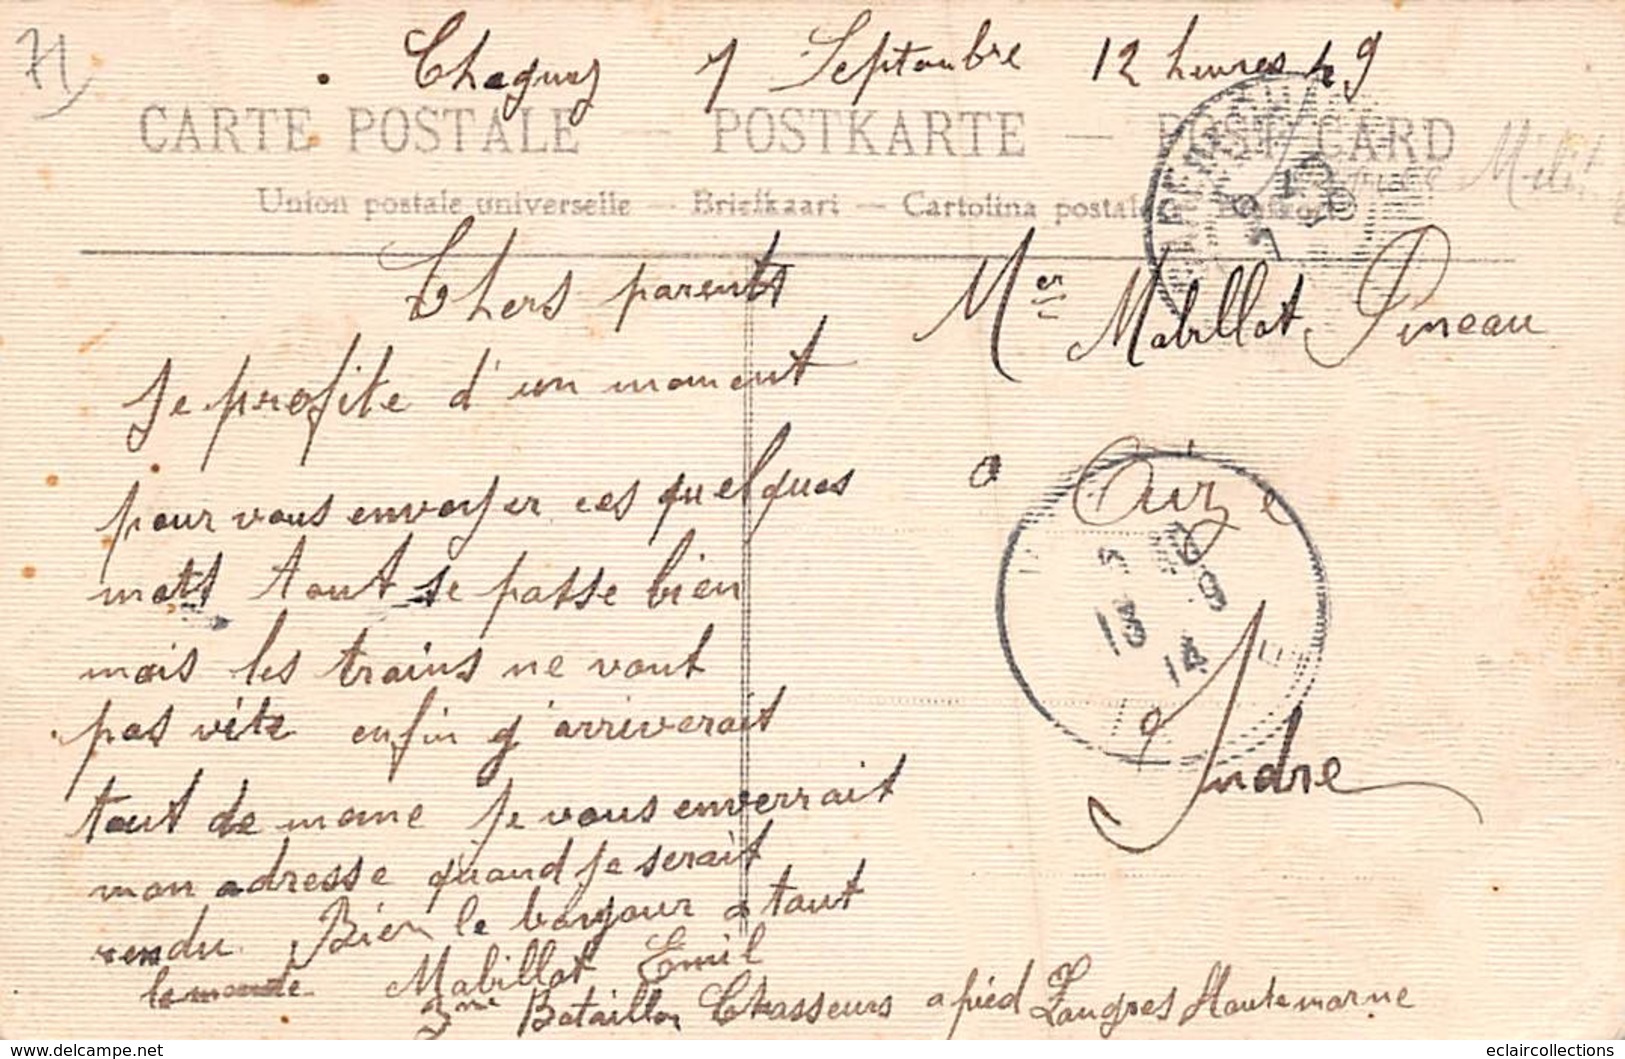 71
Chagny 7 Septenbre 12 heures 49
CARTE POSTALE — POSTKARTE — POST CARD
Union postale universelle — Briefkaart — Cartolina postale
Chers parents
Je profite d'un moment
pour vous envoyer ces quelques
mots tout se passe bien
mais les trains ne vont
pas vite enfin j'arriverait
tout de mome je vous enverrait
mon adresse quand je serait
rendu. Bien le bonjour a tout
le monde Mabillot Emil
3me Bataillon Chasseurs a pied Langres Haute marne
Mer Mabillot Pineau
a Oize
13 9
14
Indre
eclaircollections
www.delcampe.net